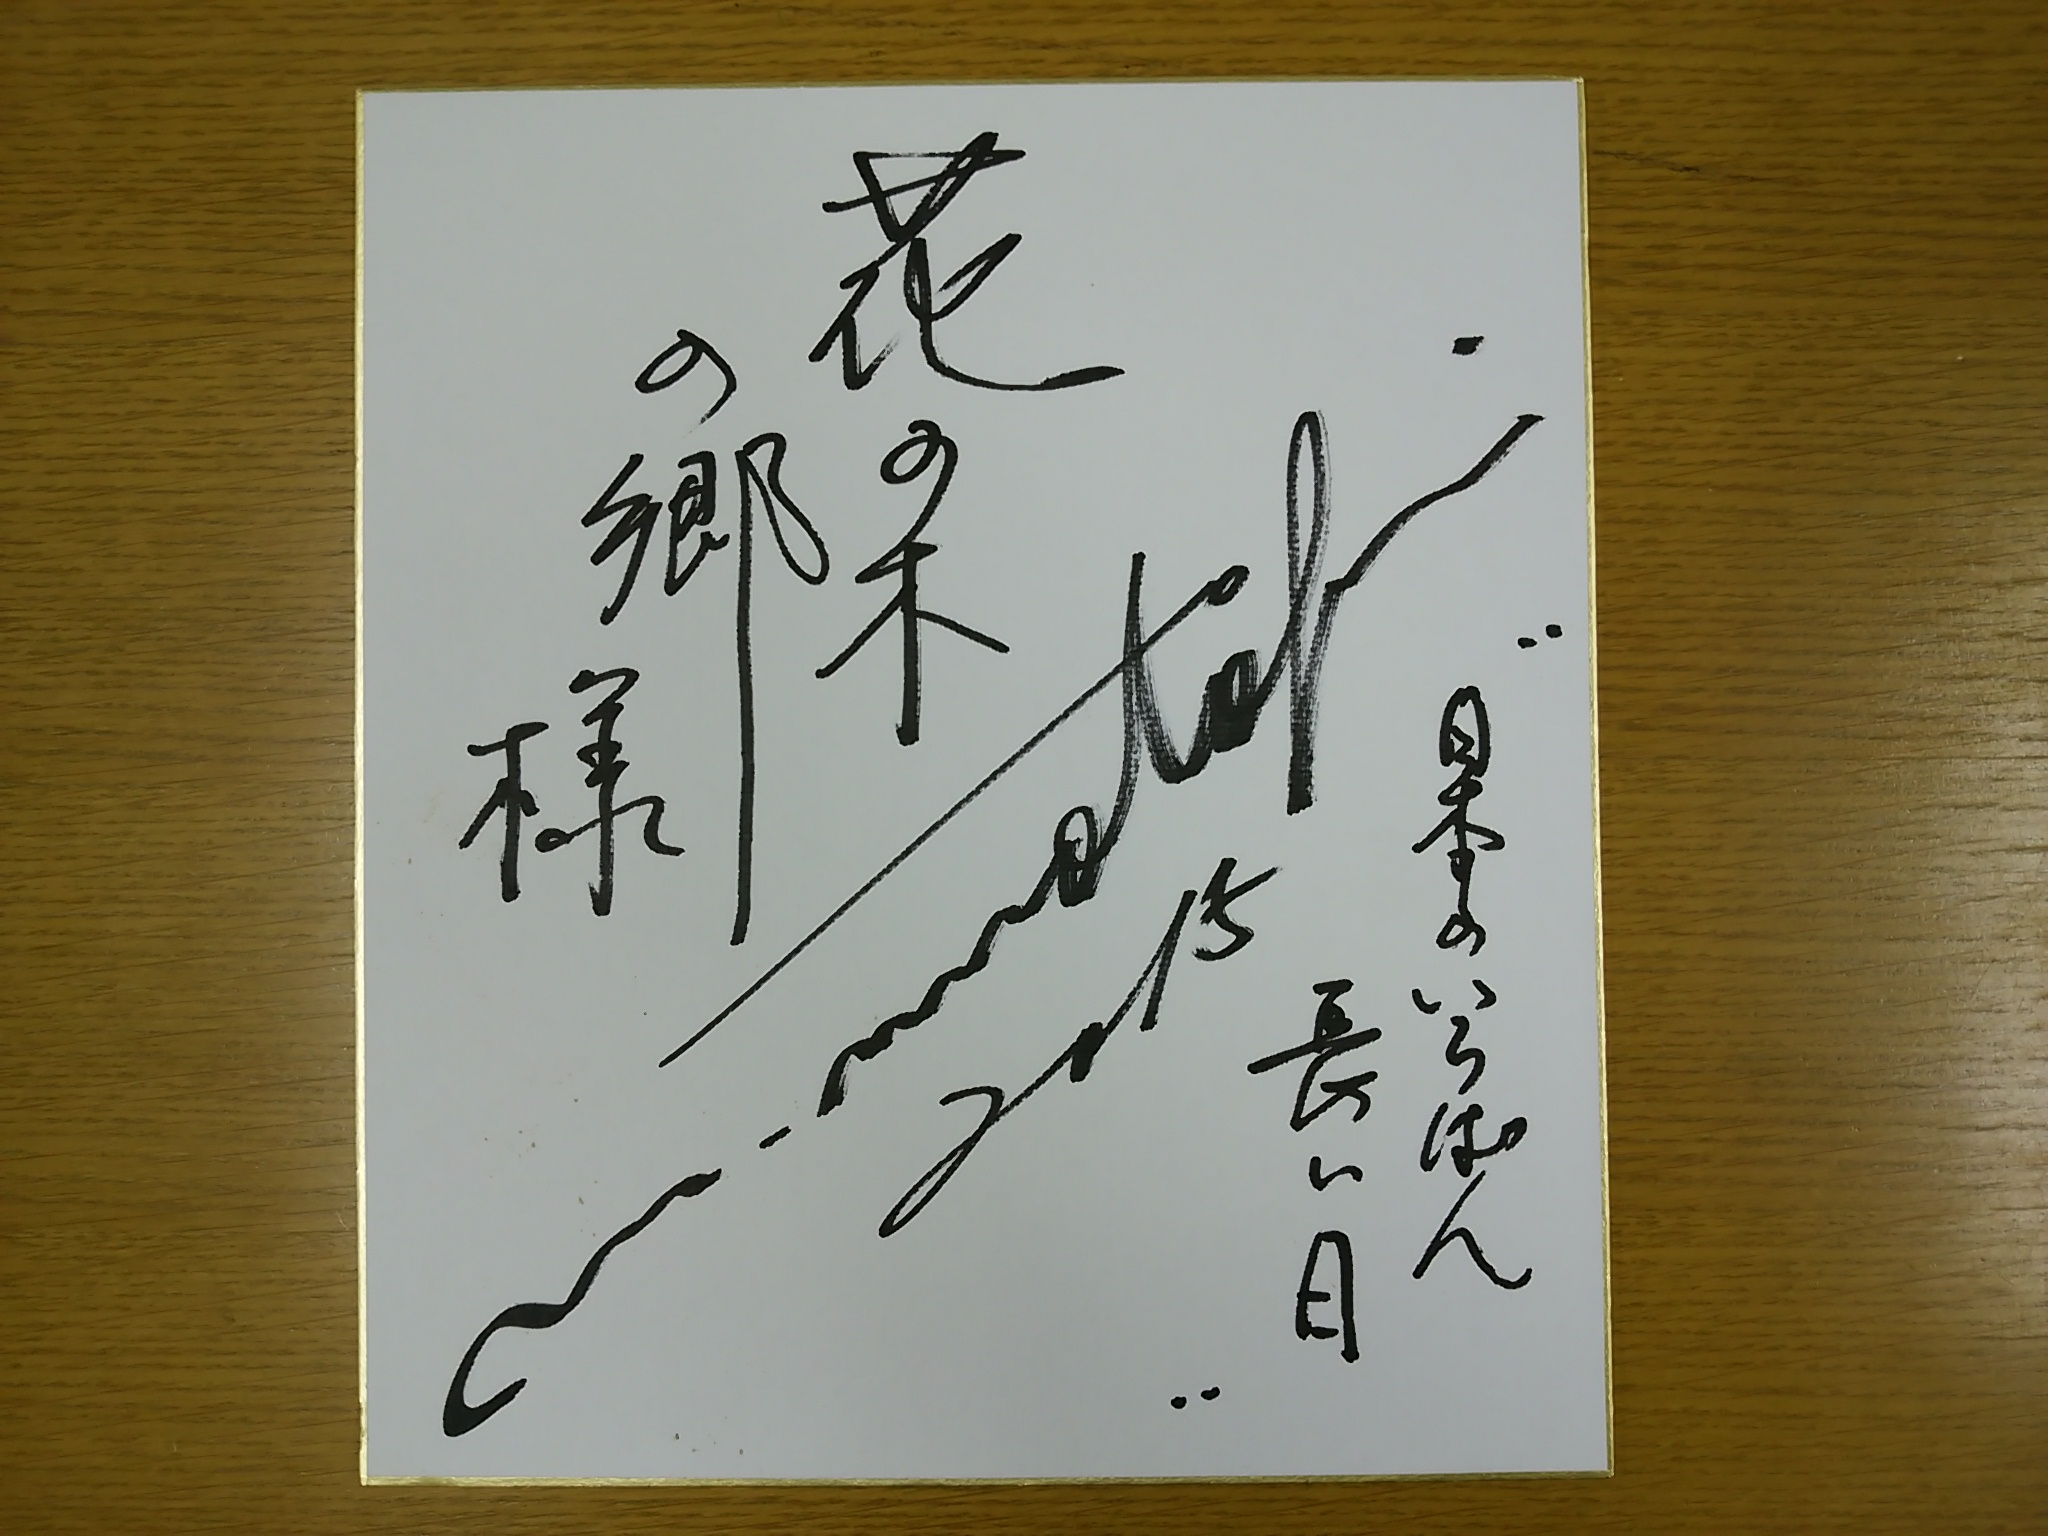 〝日本のいちばん
長い日〟
2015
花の木
の郷
様